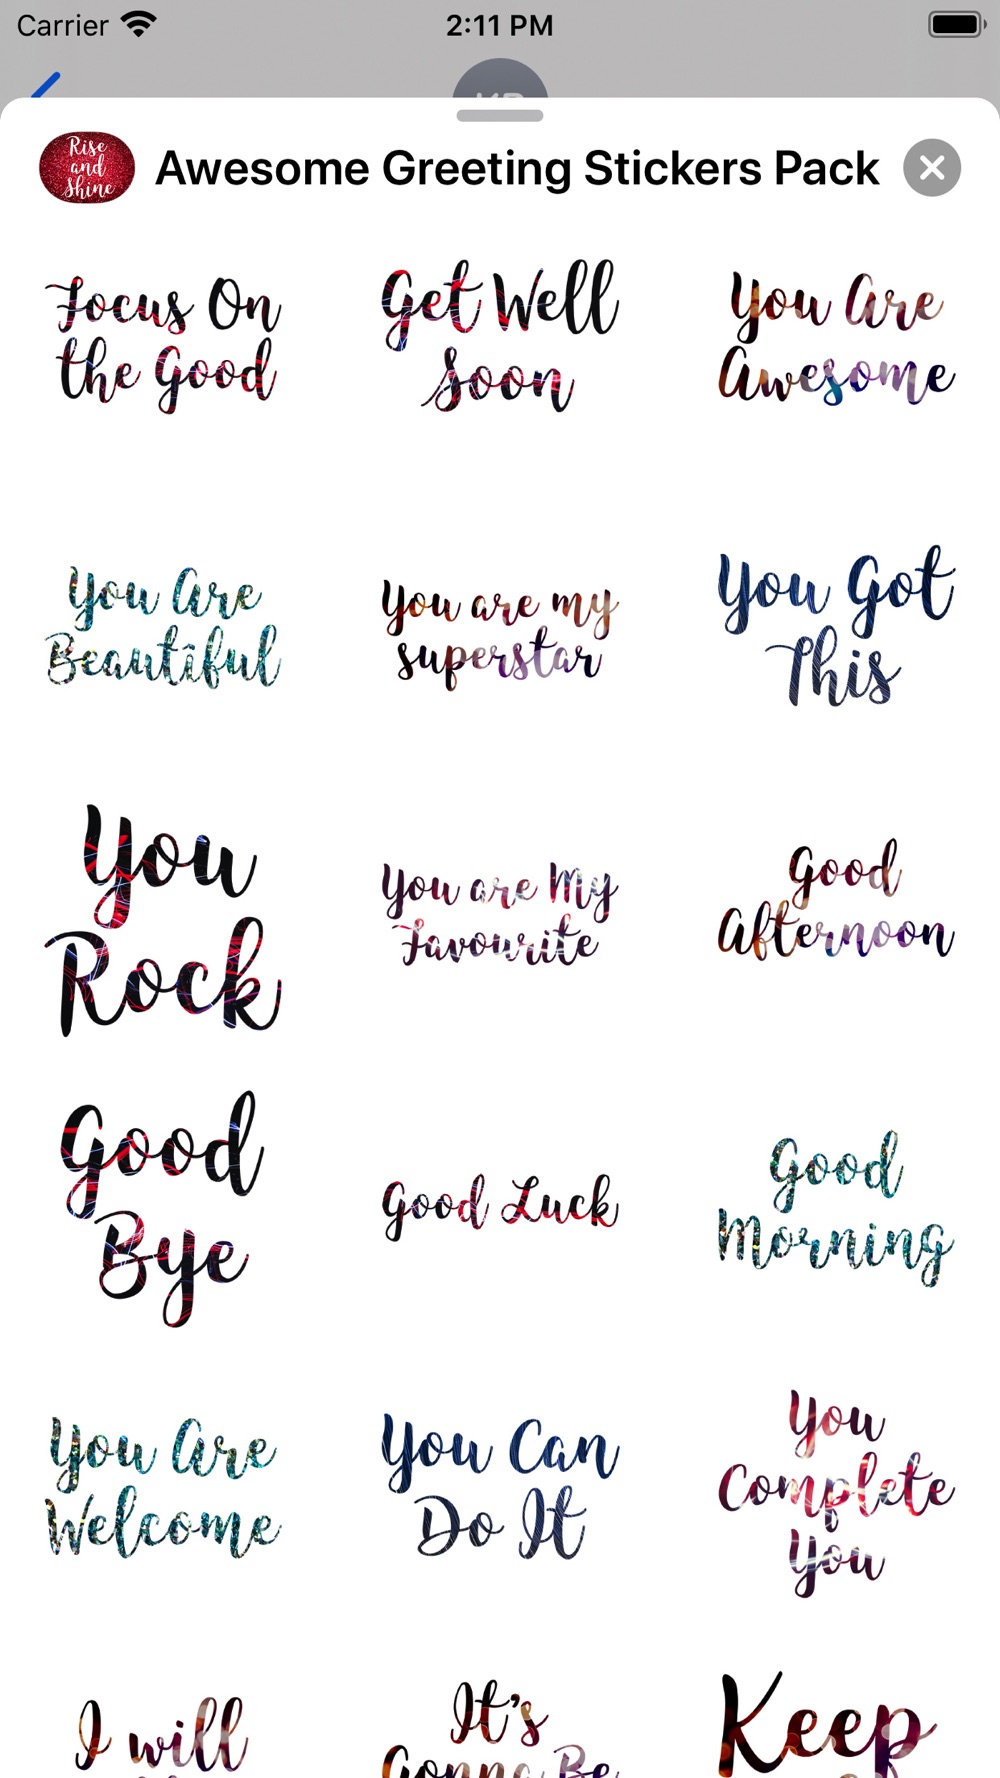 Carrier
2:11 PM
Rise
and
Shine
Awesome Greeting Stickers Pack
Focus On
the Good
Get Well
Soon
You Are
Awesome
You Are
Beautiful
You are my
superstar
You Got
This
You
Rock
You are My
Favourite
Good
Afternoon
Good
Bye
Good Luck
Good
Morning
You Are
Welcome
You Can
Do It
You
Complete
You
I will
It's
Gonna Be
Keep